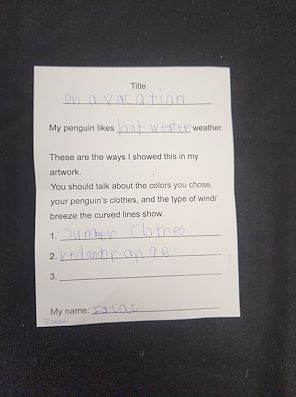 Title
on a vacation
My penguin likes hot weater weather.
These are the ways I showed this in my
artwork.
You should talk about the colors you chose,
your penguin's clothes, and the type of wind/
breeze the curved lines show.
1. Summer Clothes
2. redandorange
3.
My name: Isaac